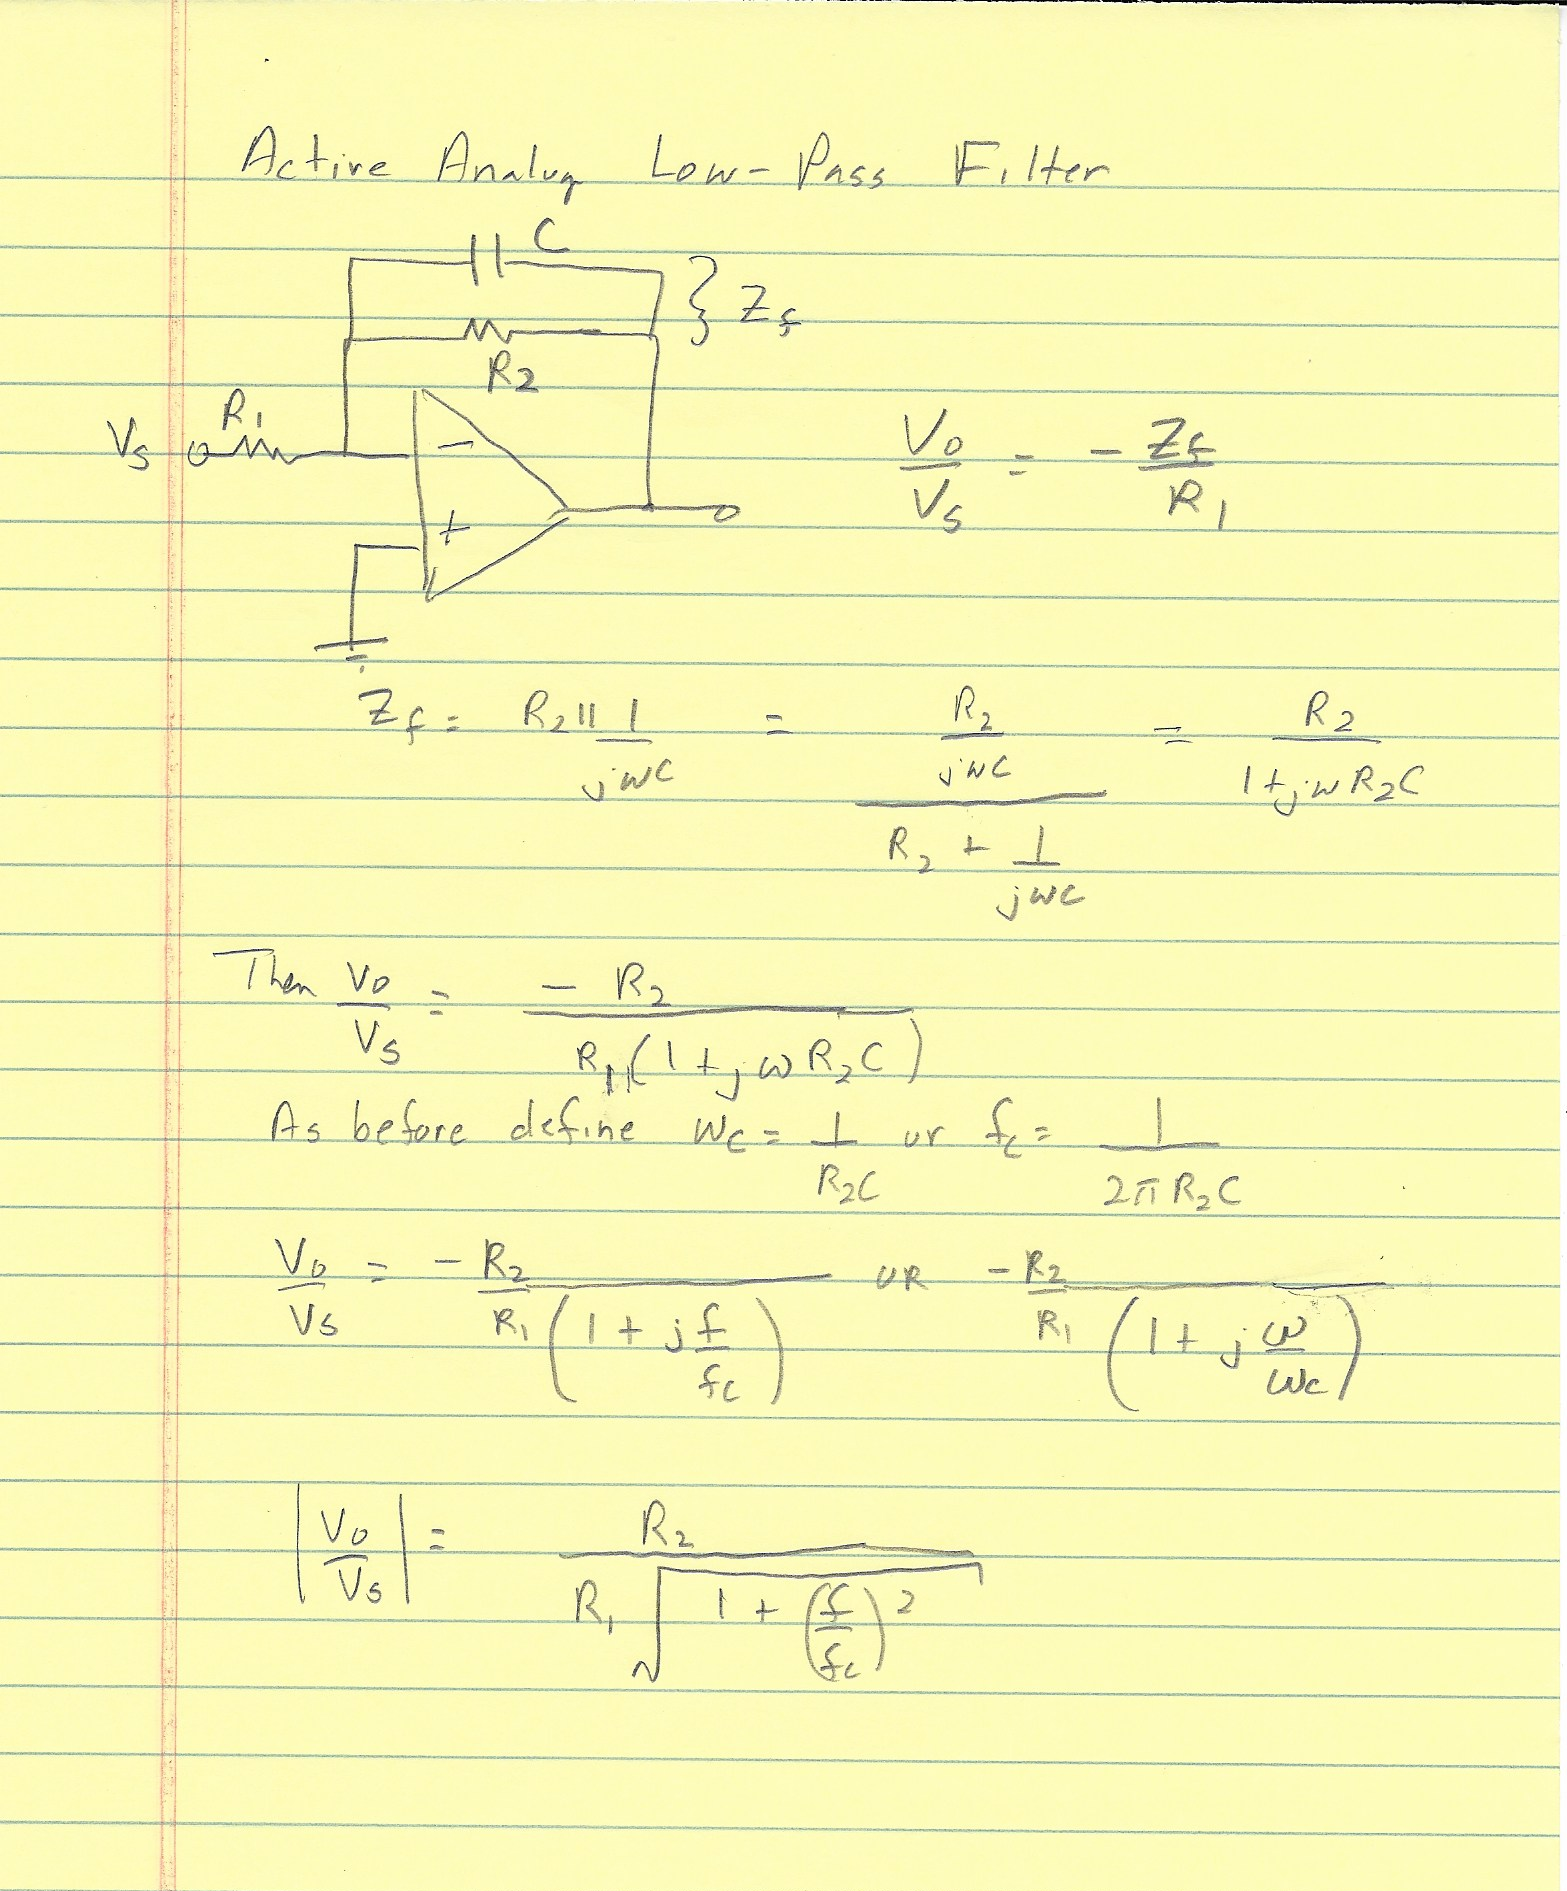 Active Analog Low-Pass Filter
C
} Z_f
R_2
R_1
V_s
−
+
V_o/V_s = - Z_f/R_1
Z_f = R_2 || 1/(jωC) = (R_2/(jωC))/(R_2 + 1/(jωC)) = R_2/(1+jωR_2C)
Then V_o/V_s = -R_2/(R_1(1+jωR_2C))
As before define ω_c = 1/(R_2C) or f_c = 1/(2πR_2C)
V_o/V_s = -R_2/(R_1(1+j f/f_c)) OR -R_2/(R_1(1+j ω/ω_c))
|V_o/V_s| = R_2/(R_1√(1+(f/f_c)^2))